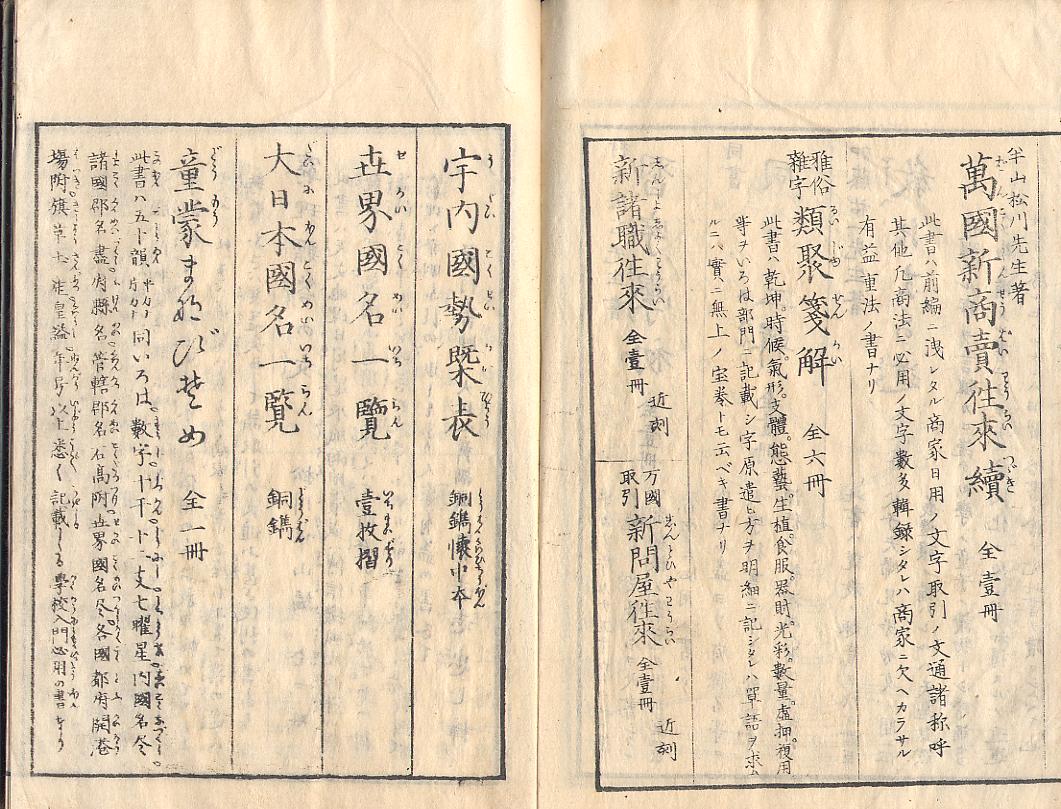 半山松川先生著
萬國新商賣往來續 全壹冊
此書ハ前編ニ洩レタル商家日用ノ文字取引ノ文通諸称呼
其他凡商法ニ必用ノ文字數多輯録シタレハ商家ニ欠ヘカラサル
有益重法ノ書ナリ
雅俗雜字 類聚箋解 全六冊
此書ハ乾坤。時候。氣形。支體。態藝。生植。食服。器財。光彩。數量。虚押。複用
等ヲいろは部門ニ記載シ字原遣ヒ方ヲ明細ニ記シタレハ單語ヲ求ム
ルニハ實ニ無上ノ宝巻トモ云ベキ書ナリ
新諸職往來 全壹冊 近刻
万國取引 新問屋往來 全壹冊 近刻
宇内國勢槩表 銅鐫懐中本
世界國名一覽 壹枚摺
大日本國名一覽 銅鐫
童蒙まなびそめ 全一冊
此書ハ五十韻 同いろは。數字十干十二支七曜星内國名尽
諸國郡名盡府縣名管轄郡名石高附世界國名尽各國都府開巷
場附旗章 皇謚年号以上悉く記載しる學校入門必用の書なり